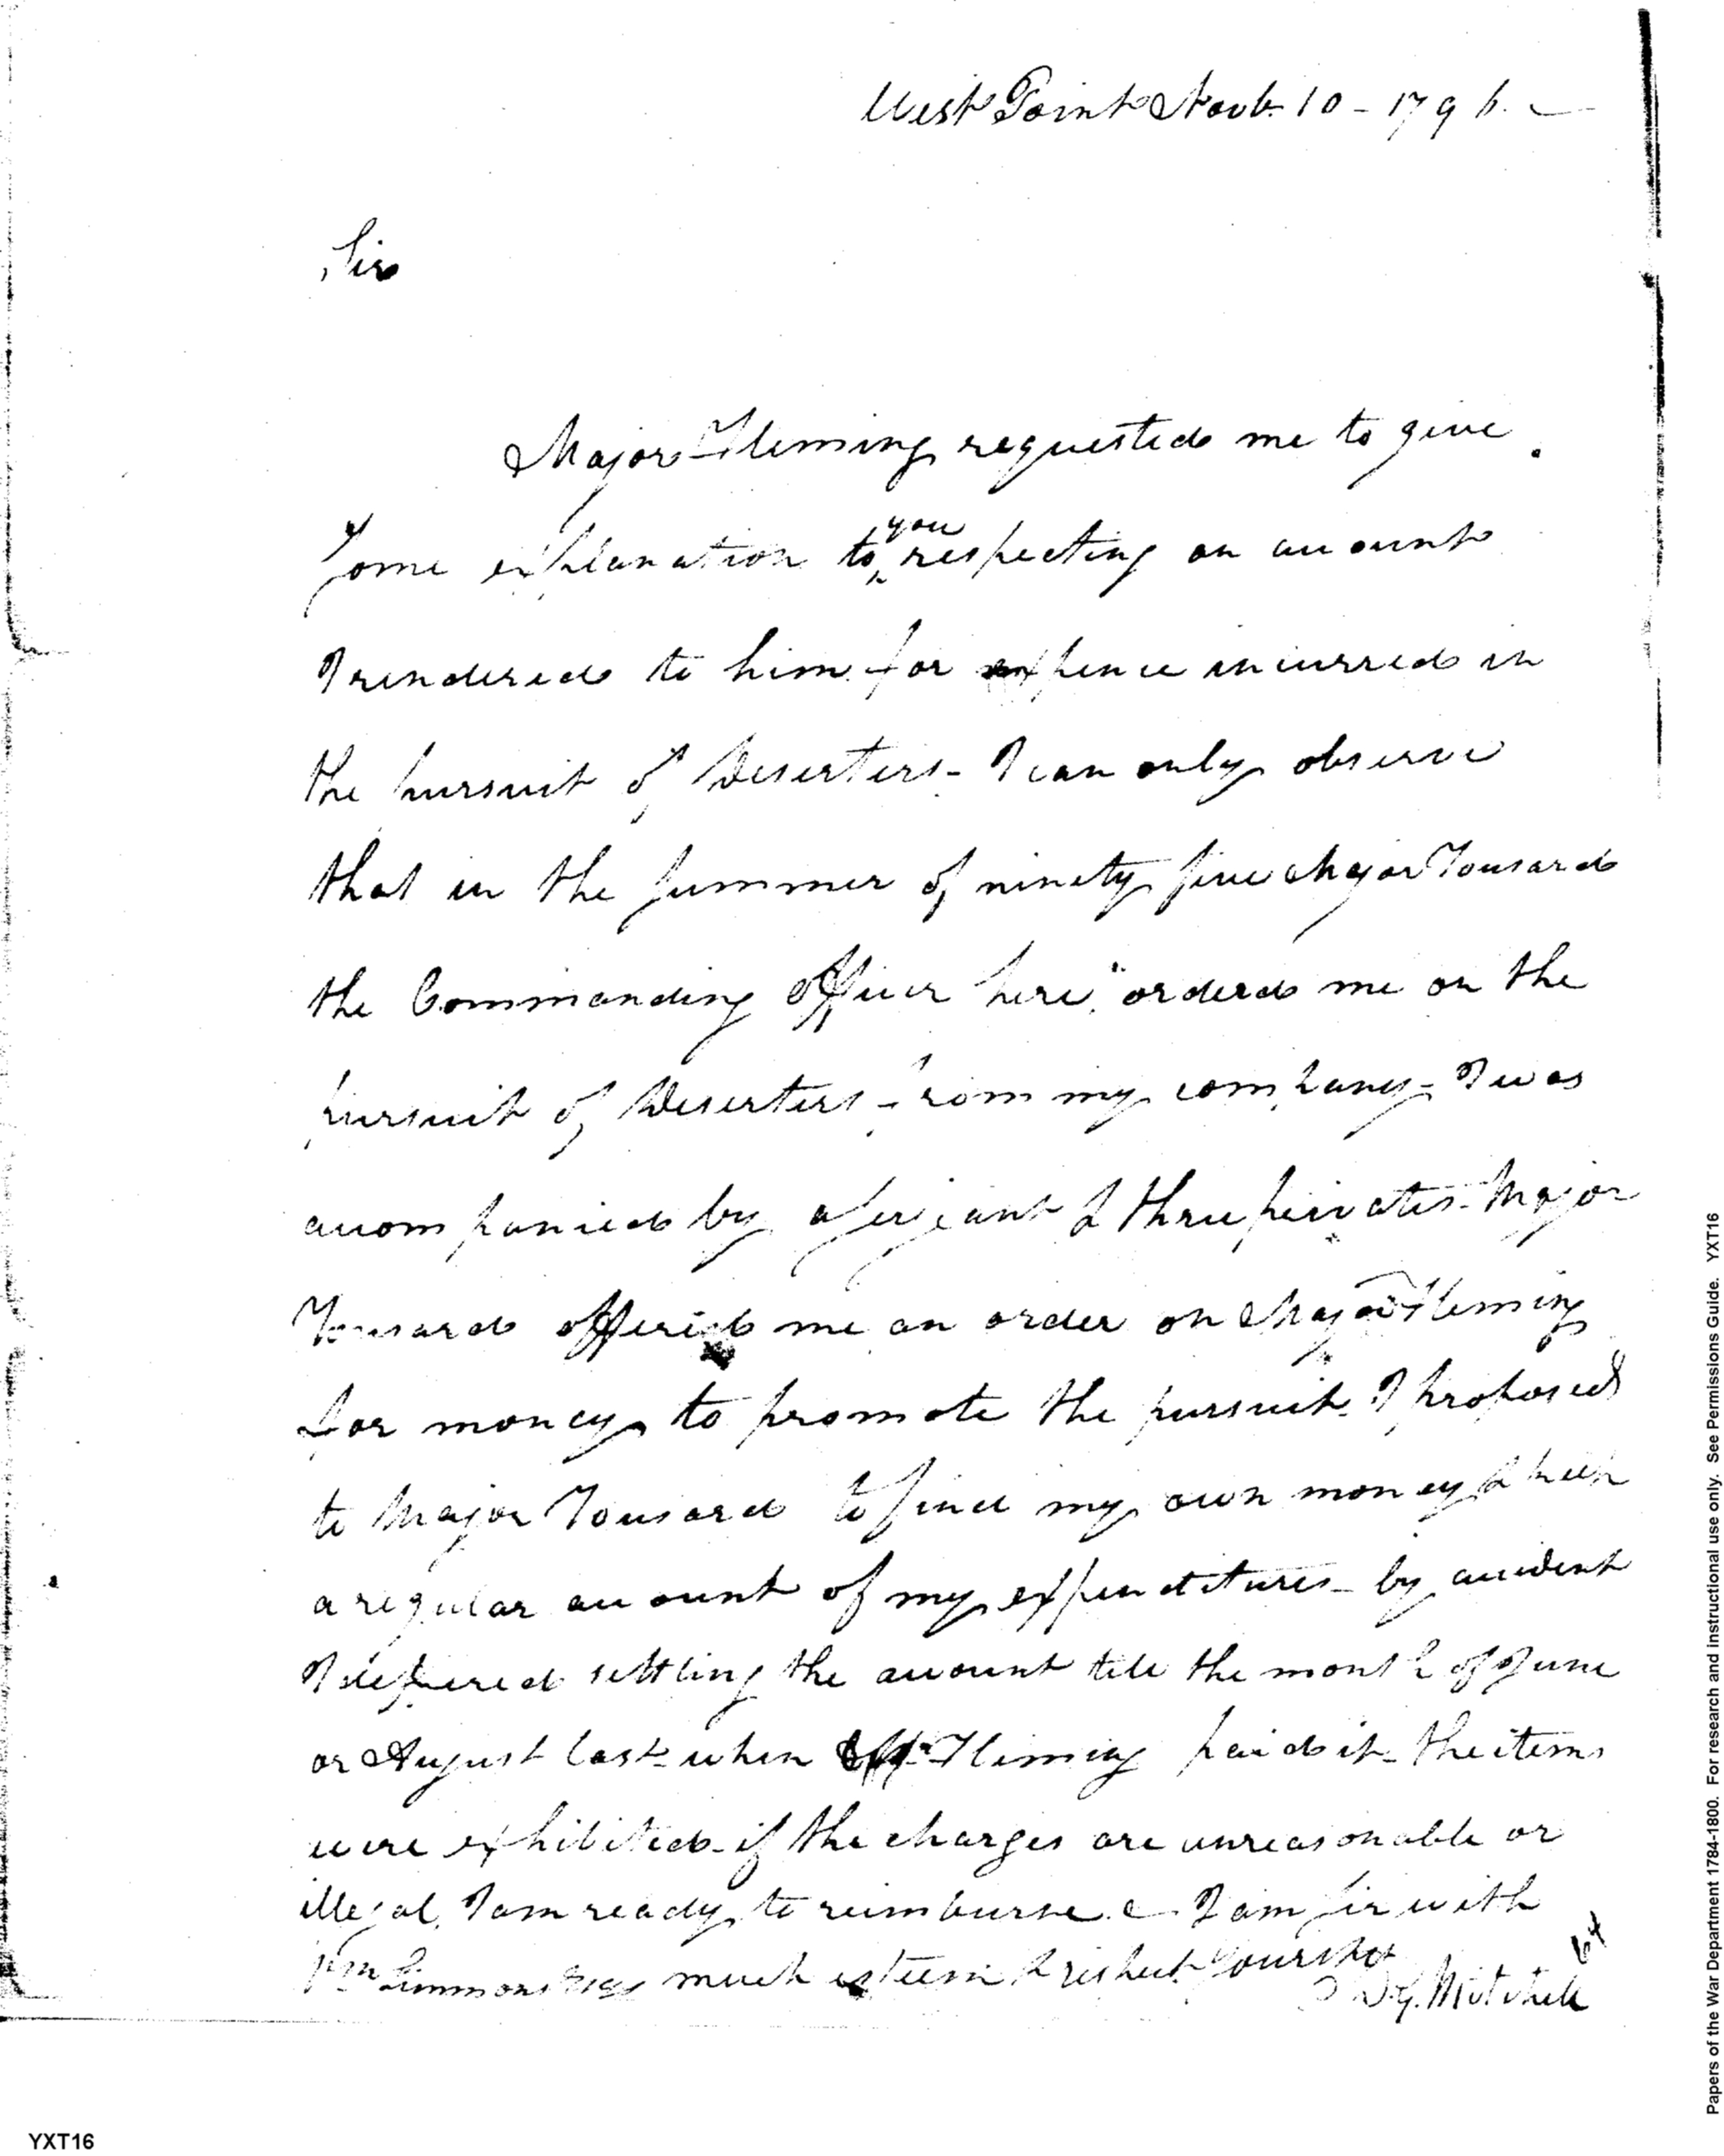 West Point Novb. 10 - 1796. -
Sir
Major Fleming requested me to give
Some explanation to you respecting an account
I rendered to him for expence incurred in
the pursuit of Deserters - I can only observe
that in the Summer of ninety five Major Tousard
the Commanding Officer here, ordered me on the
pursuit of Deserters from my company - I was
accompanied by a Serjeant & three privates - Major
Tousard offered me an order on Major Fleming
for money to promote the pursuit. I proposed
to Major Tousard to find my own money & keep
a regular account of my expenditures - by accident
I defered settling the account till the month of June
or August last - when Fleming paid it - the items
were exhibited - if the charges are unreasonable or
illegal, I am ready to reimburse - I am Sir with
Wm Simmons Esqr much esteem & respect Your
D. G. Mitchell
Papers of the War Department 1784-1800. For research and instructional use only. See Permissions Guide. YXT16
YXT16